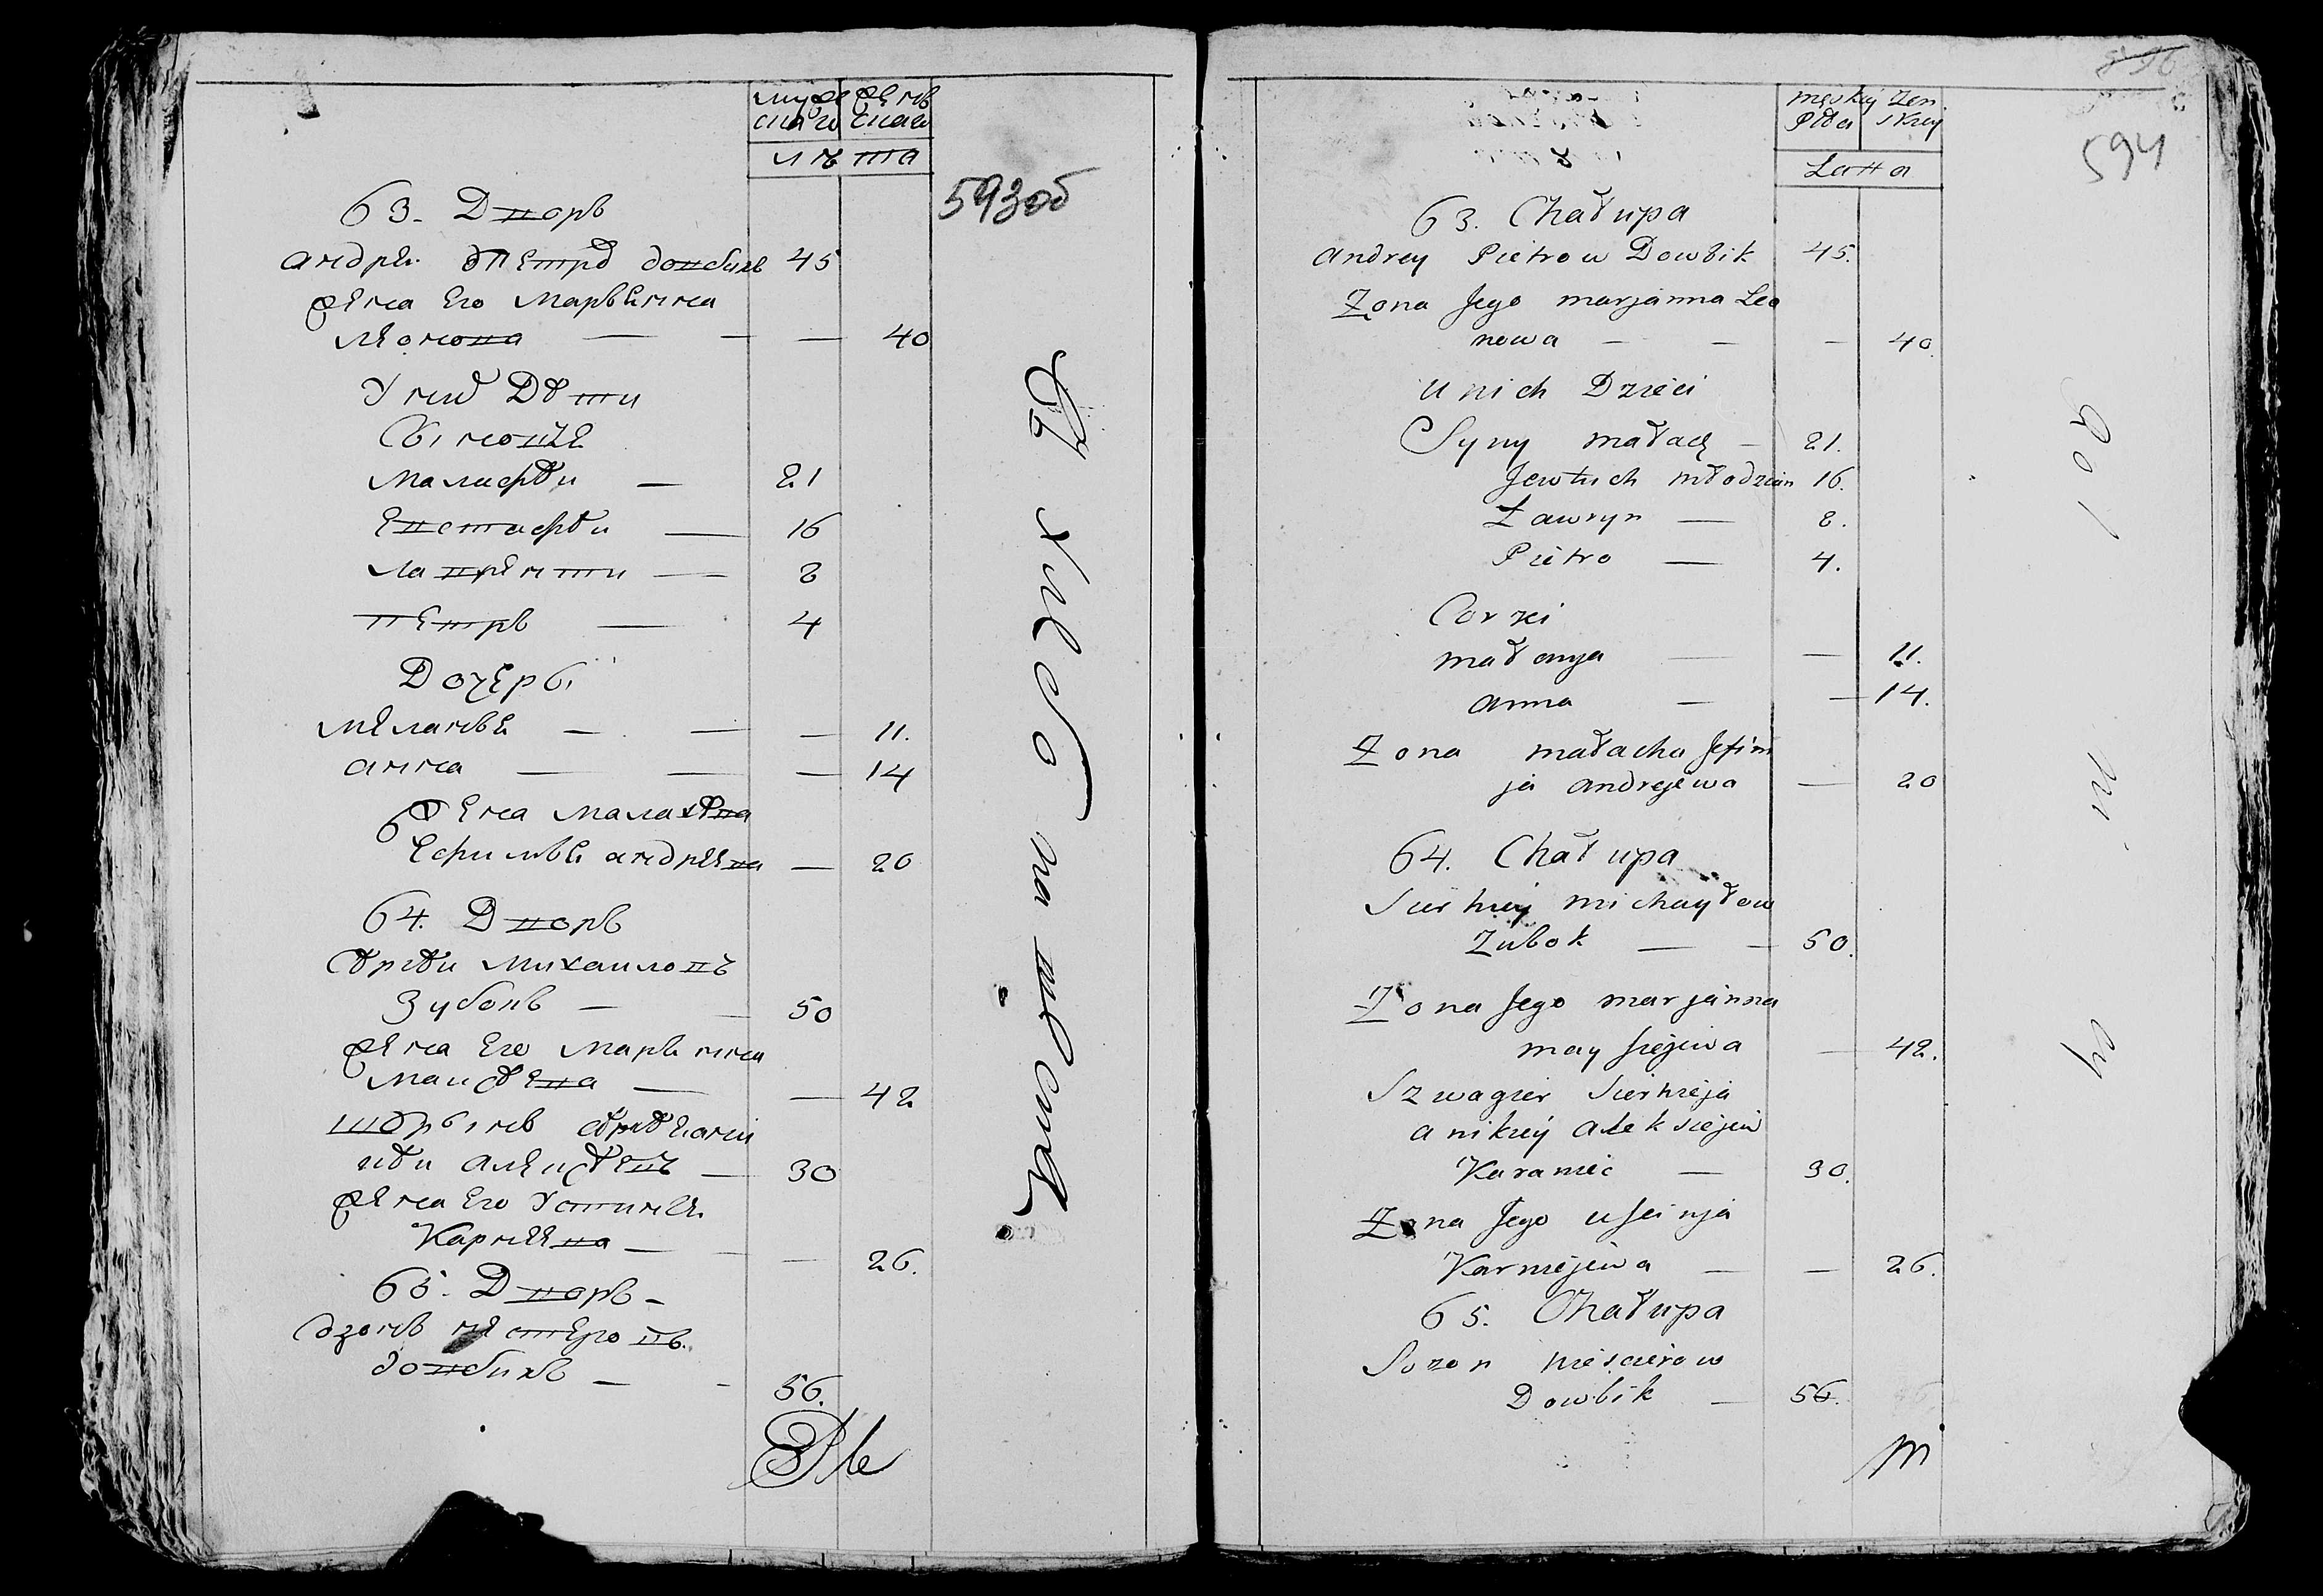 муже женъ
скаго скаго
лѣта
593об
63. Дворъ
андрей Петровъ довбикъ 45
жена Его Марьянна
леонова — — — 40
У нихъ Дѣти
Сыновье
Малафѣи — 21
Евстафѣи — 16
Лаврентии — 8
петръ — 4
Дочеры
меланья — — — 11.
анна — — — 14
жена малахѣва
Ефимья андреева — 20
64. Дворъ
Сѣргѣи Михаиловъ
Зубокъ — — 50
жена Его Марьянна
Маисѣева — — 42
шурынъ сѣргѣя ани
кѣи алексѣевъ — 30
жена Его Устинья
Карнеева — — — 26.
65. Дворъ —
созонъ нестеровъ
довбикъ — - 56.
męskiey żen
Płci skiey
Latta
594
63. Chałupa
Andrey Pietrow Dowbik 45.
Żona Jego marjanna Leo
nowa — — — 40.
U nich Dzieci
Syny małach — 21.
Jewtuch młodzian 16.
Ławryn — 8.
Pietro — 4.
Corzei
małanya — — 11.
anna — — 14.
Żona małacha Jefim
ja andrejewa — 20
64. Chałupa
Sierhiey michayłow
Zubok — — 50.
Żona Jego marjanna
maysiejewa — 42.
Szwagier Sierhieja
anikiey aleksiejew
Karaniec — 30.
Żona Jego usćinja
Karniejewa — — 26.
65. Chałupa
Sozon niesćierow
Dowbik — 56.